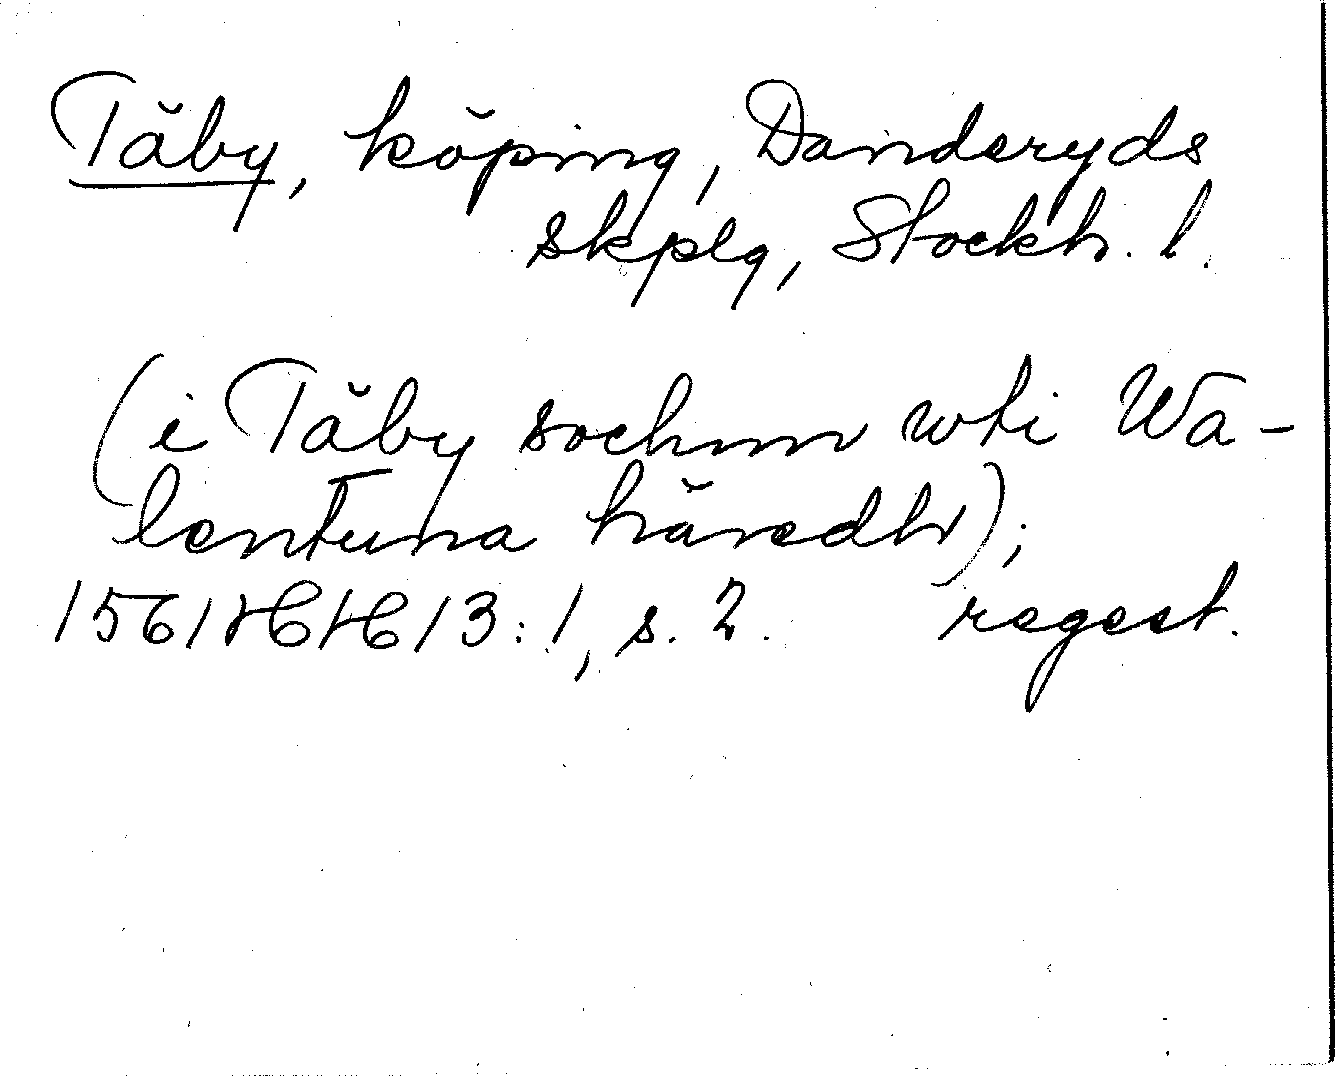 Täby, köping, Danderyds
skplg, Stockh. l.
(i Täby sochnn wti Wa-
lentuna häredh);
1561 HH 13:1, s. 2. regest.